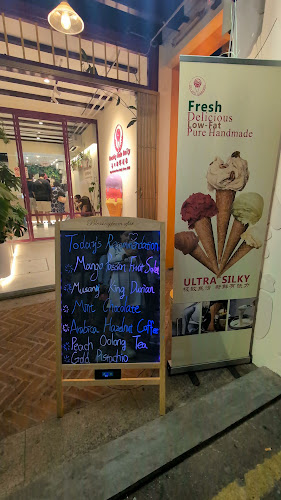 Fresh
Delicious
Low-Fat
Pure Handmade
ULTRA SILKY
Today's Recommendation
Mango Passion Fruit Sorbet
Musang King Durian
Mint Chocolate
Arabica Hazelnut Coffee
Peach Oolong Tea
Gold Pistachio